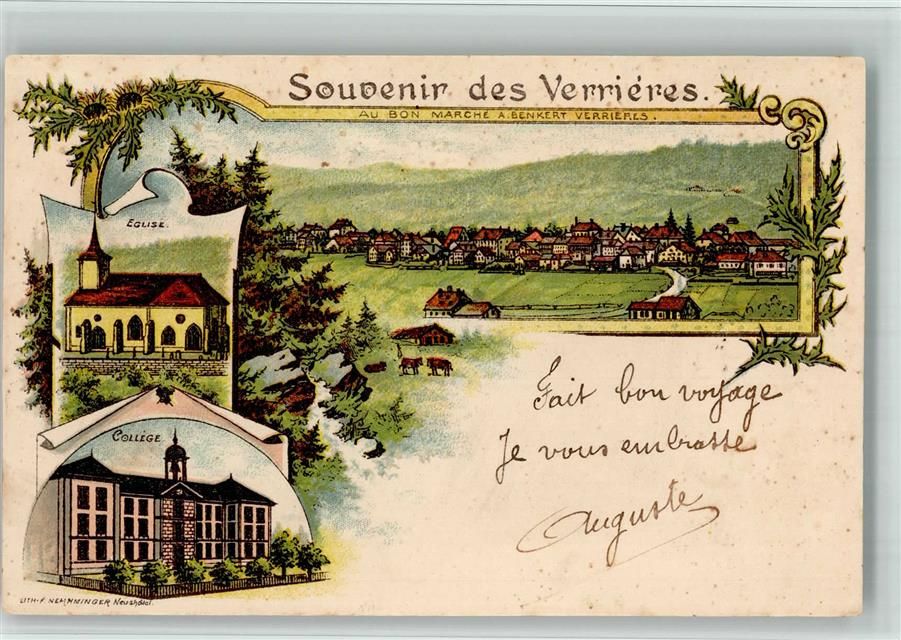 Souvenir des Verriéres.
AU BON MARCHÉ A. BENKERT VERRIÈRES.
EGLISE.
COLLÈGE
Fait bon voyage
Je vous embrasse
Auguste
LITH. F. NEMMINGER Neuchâtel.